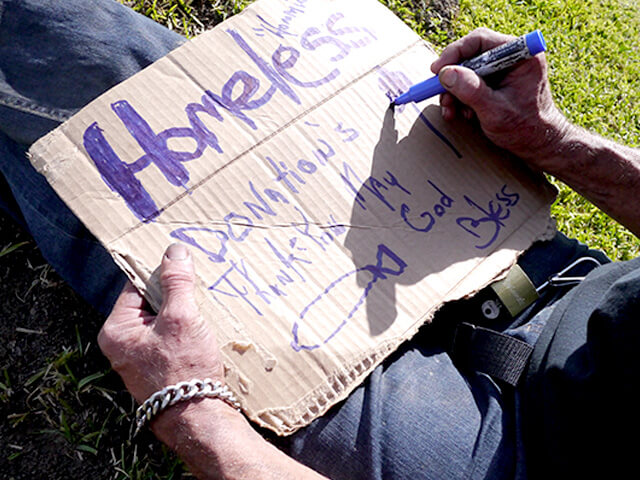 Homeless
Donation's
Thank-You May
God
Bless